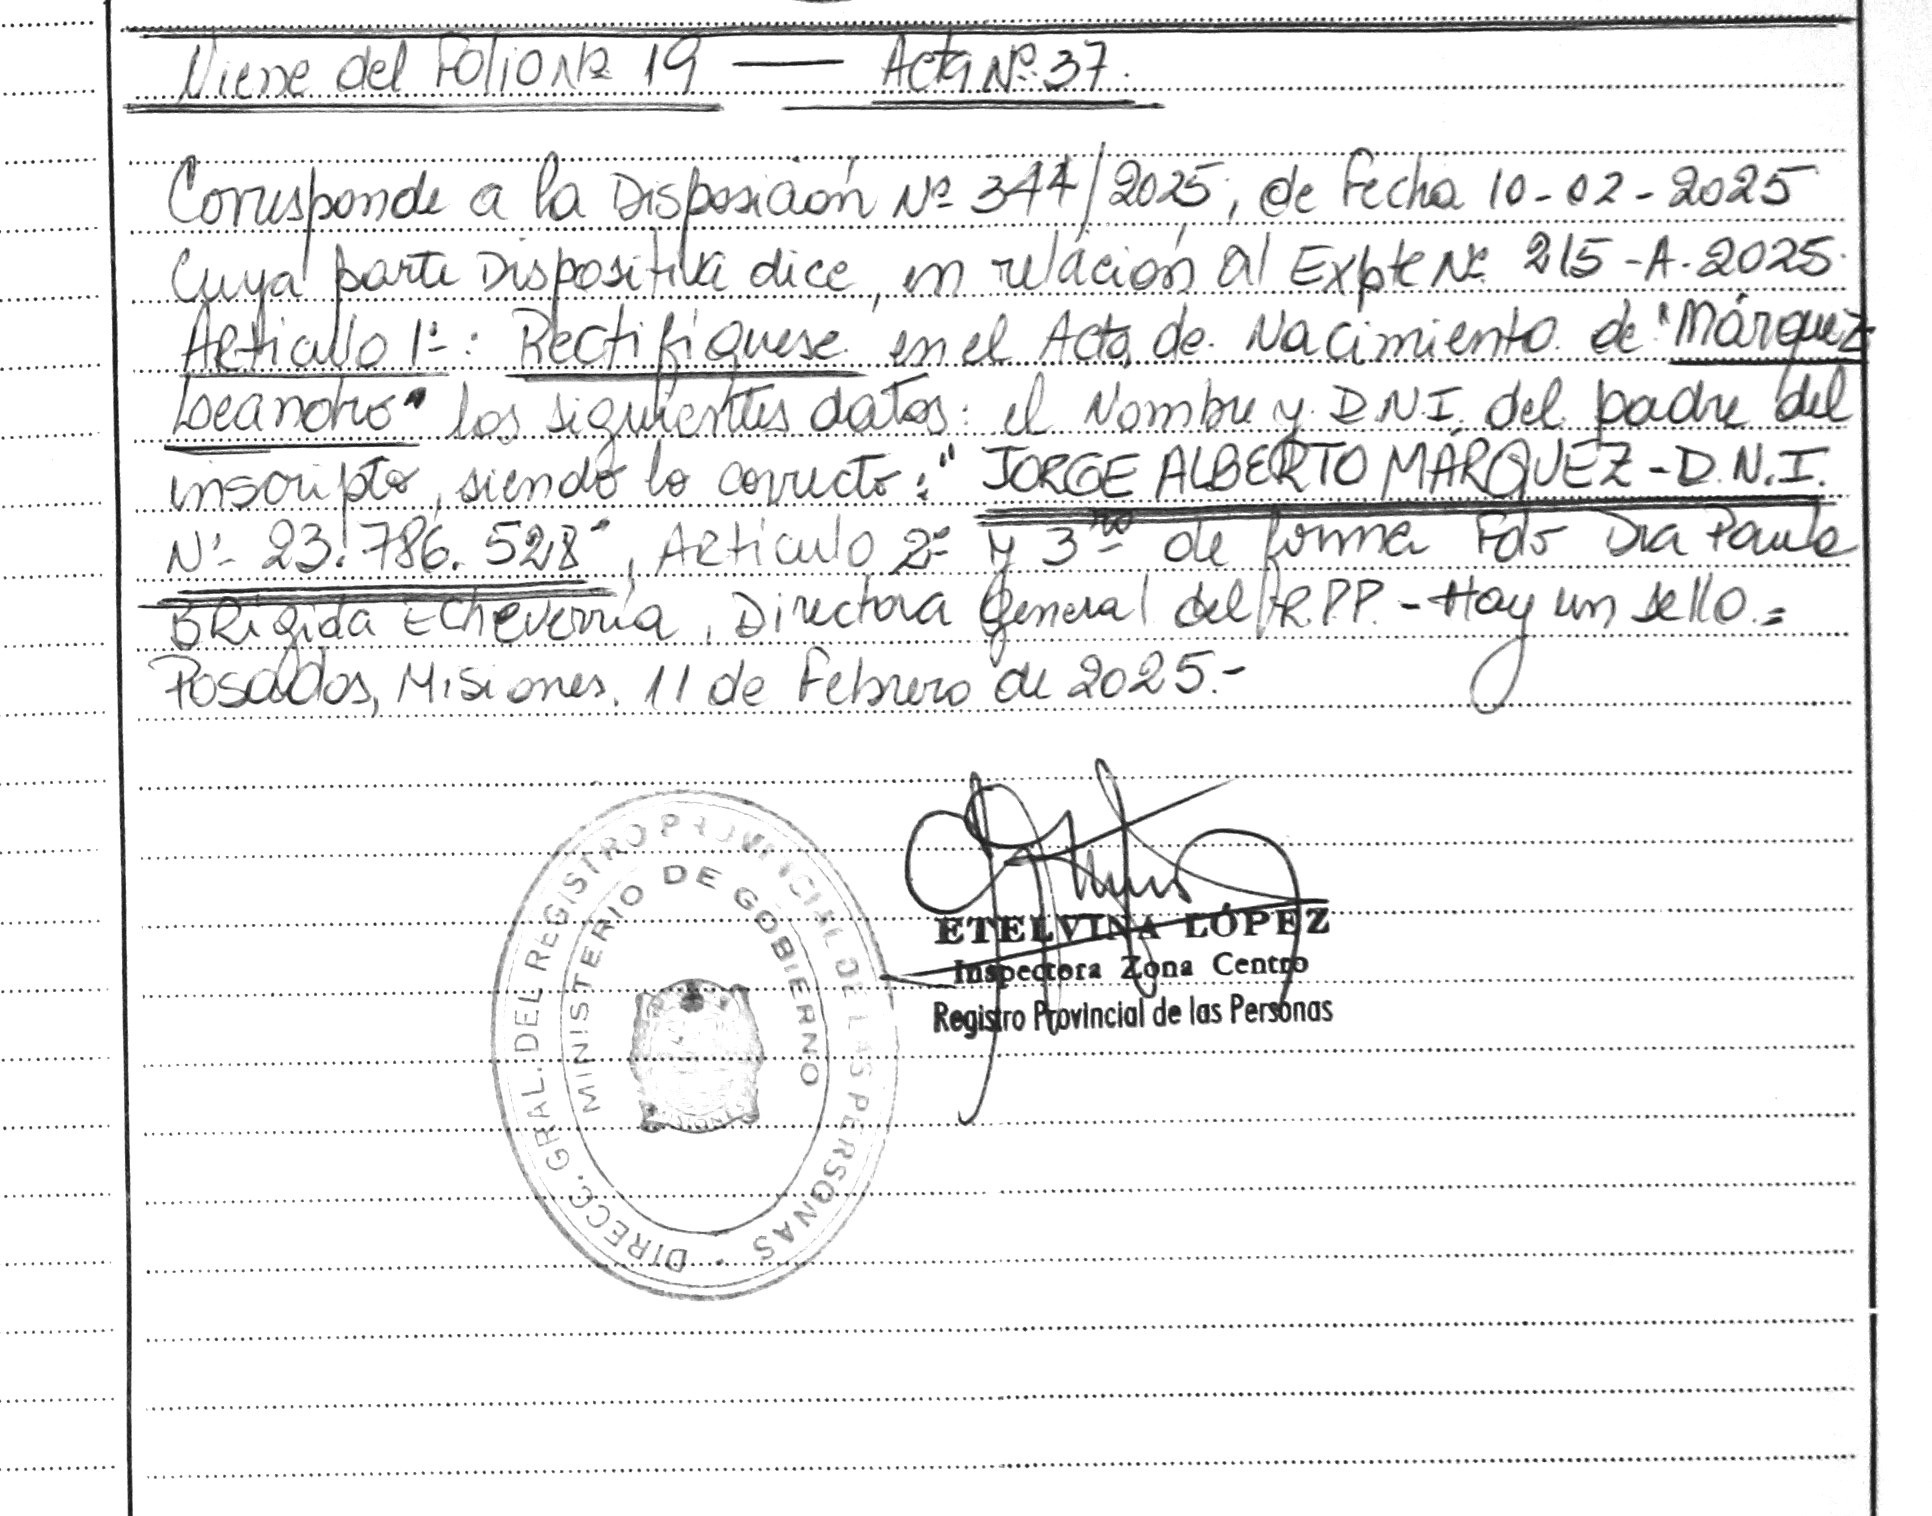 Viene del Folio Nº 19 — Acta Nº 37.
Corresponde a la Disposición Nº 344/2025, de Fecha 10-02-2025
Cuya parte Dispositiva dice, en relación al Expte Nº 215-A-2025.
Artículo 1º: Rectifíquese en el Acta de Nacimiento de "Márquez
Leandro" los siguientes datos: el Nombre y D.N.I. del padre del
inscripto, siendo lo correcto: "JORGE ALBERTO MÁRQUEZ - D.N.I.
Nº 23.786.528", Artículo 2º y 3ro de forma Fdo Dra Paula
Brígida Echeverría, Directora General del R.P.P. - Hay un sello.=
Posadas, Misiones, 11 de Febrero de 2025.-
DIRECC. GRAL. DEL REGISTRO PROVINCIAL DE LAS PERSONAS
MINISTERIO DE GOBIERNO
ETELVINA LÓPEZ
Inspectora Zona Centro
Registro Provincial de las Personas